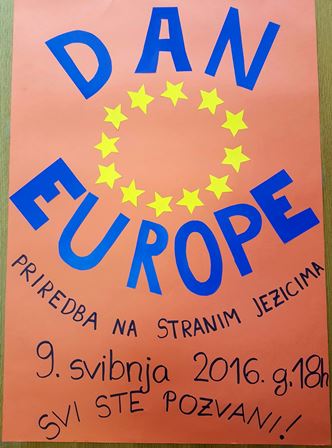 DAN
EUROPE
PRIREDBA NA STRANIM JEZICIMA
9. svibnja 2016. g. 18h
SVI STE POZVANI!